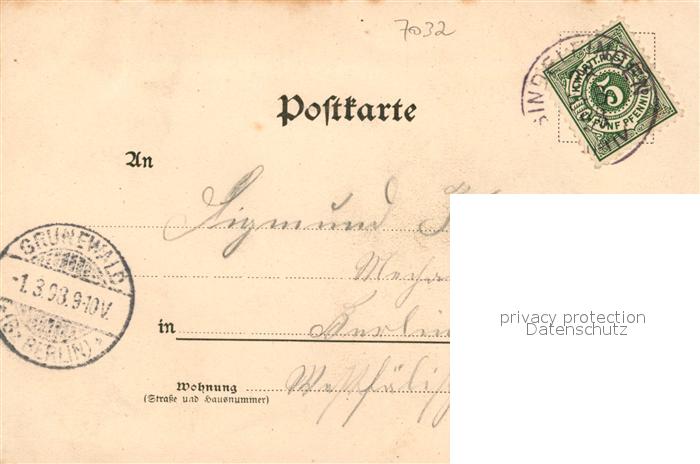 7032
SINDELFINGEN
K. WÜRTT. POST
5
FÜNF PFENNIG
Postkarte
An
Sigmund
GRUNEWALD
-1.3.98.9-10V.
(B. BERLIN)
in Berlin
Wohnung Westfälisch
(Straße und Hausnummer)
privacy protection
Datenschutz